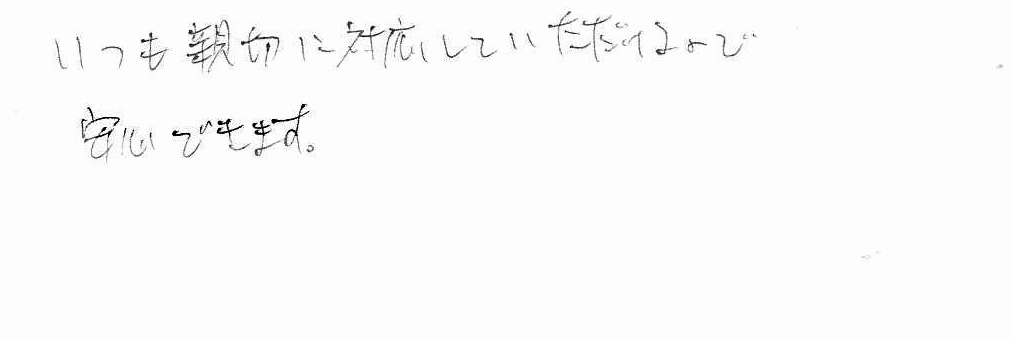 いつも親切に対応していただけるので
安心できます。